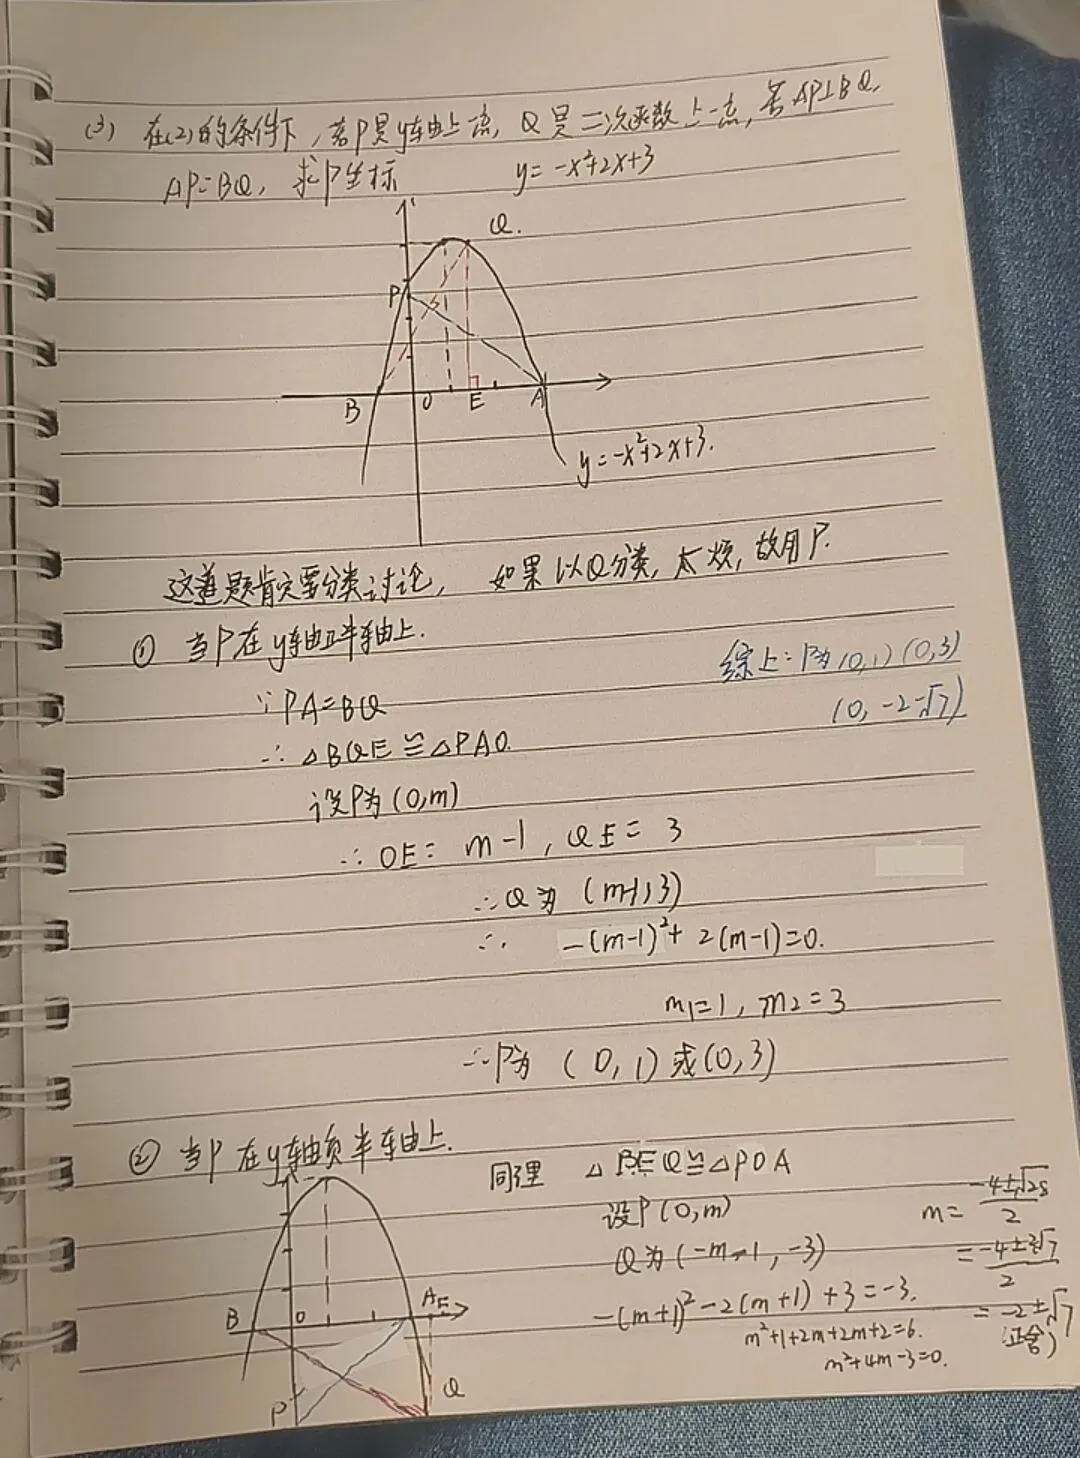 (3) 在(2)的条件下,若P是y轴上一点,Q是二次函数上一点,若AP⊥BQ,
AP=BQ,求P坐标 y=-x²+2x+3
Q.
P
B O E A
y=-x²+2x+3.
这道题肯定要分类讨论,如果以Q分类,太烦,故用P.
① 当P在y轴正半轴上.
综上:P为(0,1)(0,3)
(0,-2-√7)
∵PA=BQ
∴△BQE≌△PAO.
设P为(0,m)
∴OE=m-1,QE=3
∴Q为(m-1,3)
∴ -(m-1)²+2(m-1)=0.
m₁=1,m₂=3
∴P为(0,1)或(0,3)
② 当P在y轴负半轴上.
同理 △BEQ≌△POA
设P(0,m)
Q为(-m-1,-3)
-(m+1)²-2(m+1)+3=-3.
m²+1+2m+2m+2=6.
m²+4m-3=0.
m=(-4±√28)/2
=(-4±2√7)/2
=-2±√7
(正舍)
B O A E
P Q